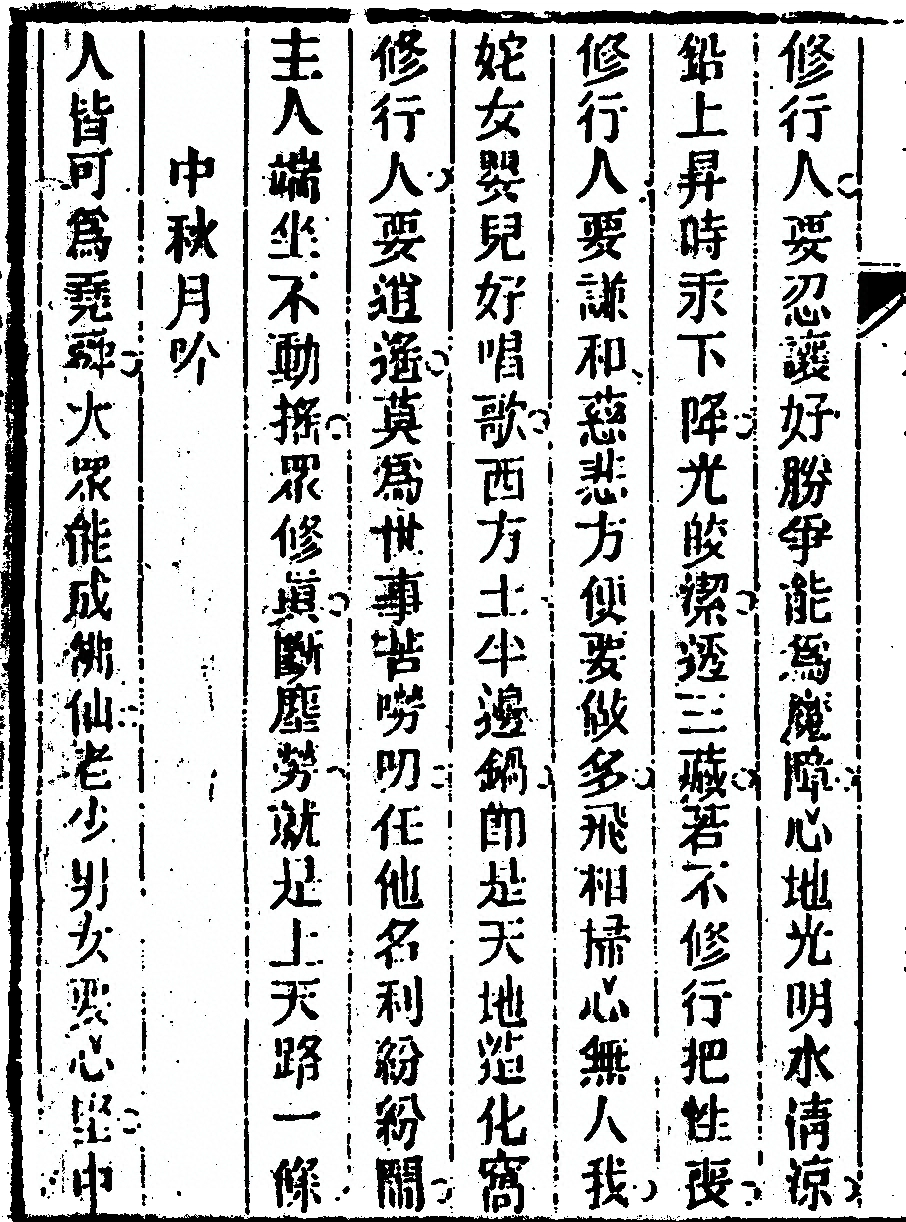 修行人要忍讓好勝爭能爲魔障心地光明水清凉
鉛上昇時汞下降光皎潔透三藏若不修行把性喪
修行人要謙和慈悲方便要做多飛相掃心無人我
姹女嬰兒好唱歌西方土半邊鍋卽是天地造化窩
修行人要逍遙莫爲世事苦嘮叨任他名利紛紛鬧
主人端坐不動搖眾修眞斷塵勞就是上天路一條
中秋月吟
人皆可爲堯舜大眾能成佛仙老少男女要心堅中